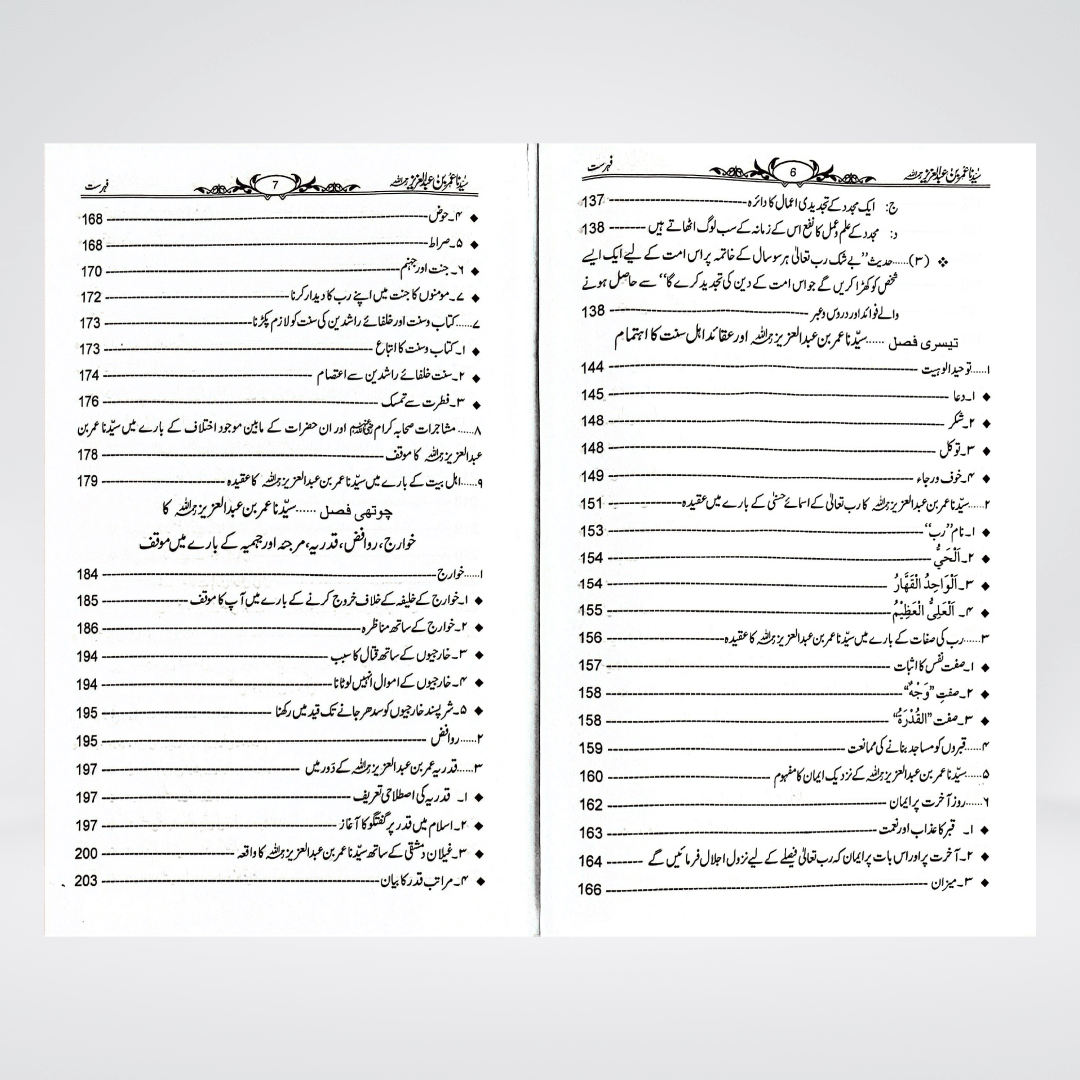 سیّدنا عمر بن عبدالعزیز رحمہ اللہ 6 فہرست
ج: ایک مجدد کے تجدیدی اعمال کا دائرہ 137
د: مجدد کے علم و عمل کا نفع اس کے زمانہ کے سب لوگ اٹھاتے ہیں 138
❖ (۳)..... حدیث ’’بے شک رب تعالیٰ ہر سو سال کے خاتمہ پر اس امت کے لیے ایک ایسے
شخص کو کھڑا کریں گے جو اس امت کے دین کی تجدید کرے گا‘‘ سے حاصل ہونے
والے فوائد اور دروس و عبر 138
تیسری فصل ..... سیّدنا عمر بن عبدالعزیز رحمہ اللہ اور عقائد اہل سنت کا اہتمام
۱..... توحید الوہیت 144
◆ ۱۔ دعا 145
◆ ۲۔ شکر 148
◆ ۳۔ توکل 148
◆ ۴۔ خوف ورجاء 149
۲..... سیّدنا عمر بن عبدالعزیز رحمہ اللہ کا رب تعالیٰ کے اسمائے حسنٰی کے بارے میں عقیدہ 151
◆ ۱۔ نام ’’رب‘‘ 153
◆ ۲۔ اَلْحَيُّ 154
◆ ۳۔ اَلْوَاحِدُ الْقَهَّارُ 154
◆ ۴۔ اَلْعَلِیُّ الْعَظِیْمُ 155
۳..... رب کی صفات کے بارے میں سیّدنا عمر بن عبدالعزیز رحمہ اللہ کا عقیدہ 156
◆ ۱۔ صفت نفس کا اثبات 157
◆ ۲۔ صفتِ ’’وَجْهٌ‘‘ 158
◆ ۳۔ صفت ’’القُدْرَةُ‘‘ 158
۴..... قبروں کو مساجد بنانے کی ممانعت 159
۵..... سیّدنا عمر بن عبدالعزیز رحمہ اللہ کے نزدیک ایمان کا مفہوم 160
۶..... روز آخرت پر ایمان 162
◆ ۱۔ قبر کا عذاب اور نعمت 163
◆ ۲۔ آخرت پر اور اس بات پر ایمان کہ رب تعالیٰ فیصلے کے لیے نزول اجلال فرمائیں گے 164
◆ ۳۔ میزان 166
سیّدنا عمر بن عبدالعزیز رحمہ اللہ 7 فہرست
◆ ۴۔ حوض 168
◆ ۵۔ صراط 168
◆ ۶۔ جنت اور جہنم 170
◆ ۷۔ مومنوں کا جنت میں اپنے رب کا دیدار کرنا 172
۷..... کتاب وسنت اور خلفائے راشدین کی سنت کو لازم پکڑنا 173
◆ ۱۔ کتاب وسنت کا اتباع 173
◆ ۲۔ سنت خلفائے راشدین سے اعتصام 174
◆ ۳۔ فطرت سے تمسک 176
۸..... مشاجرات صحابہ کرام رضی اللہ عنہم اور ان حضرات کے مابین موجود اختلاف کے بارے میں سیّدنا عمر بن
عبدالعزیز رحمہ اللہ کا موقف 178
۹..... اہل بیت کے بارے میں سیّدنا عمر بن عبدالعزیز رحمہ اللہ کا عقیدہ 179
چوتھی فصل ..... سیّدنا عمر بن عبدالعزیز رحمہ اللہ کا
خوارج، روافض، قدریہ، مرجئہ اور جہمیہ کے بارے میں موقف
۱..... خوارج 184
◆ ۱۔ خوارج کے خلیفہ کے خلاف خروج کرنے کے بارے میں آپ کا موقف 185
◆ ۲۔ خوارج کے ساتھ مناظرہ 186
◆ ۳۔ خارجیوں کے ساتھ قتال کا سبب 194
◆ ۴۔ خارجیوں کے اموال انہیں لوٹانا 194
◆ ۵۔ شر پسند خارجیوں کو سدھر جانے تک قید میں رکھنا 195
۲..... روافض 195
۳..... قدریہ عمر بن عبدالعزیز رحمہ اللہ کے دَور میں 197
◆ ۱۔ قدریہ کی اصطلاحی تعریف 197
◆ ۲۔ اسلام میں قدر پر گفتگو کا آغاز 197
◆ ۳۔ غیلان دمشقی کے ساتھ سیّدنا عمر بن عبدالعزیز رحمہ اللہ کا واقعہ 200
◆ ۴۔ مراتب قدر کا بیان 203